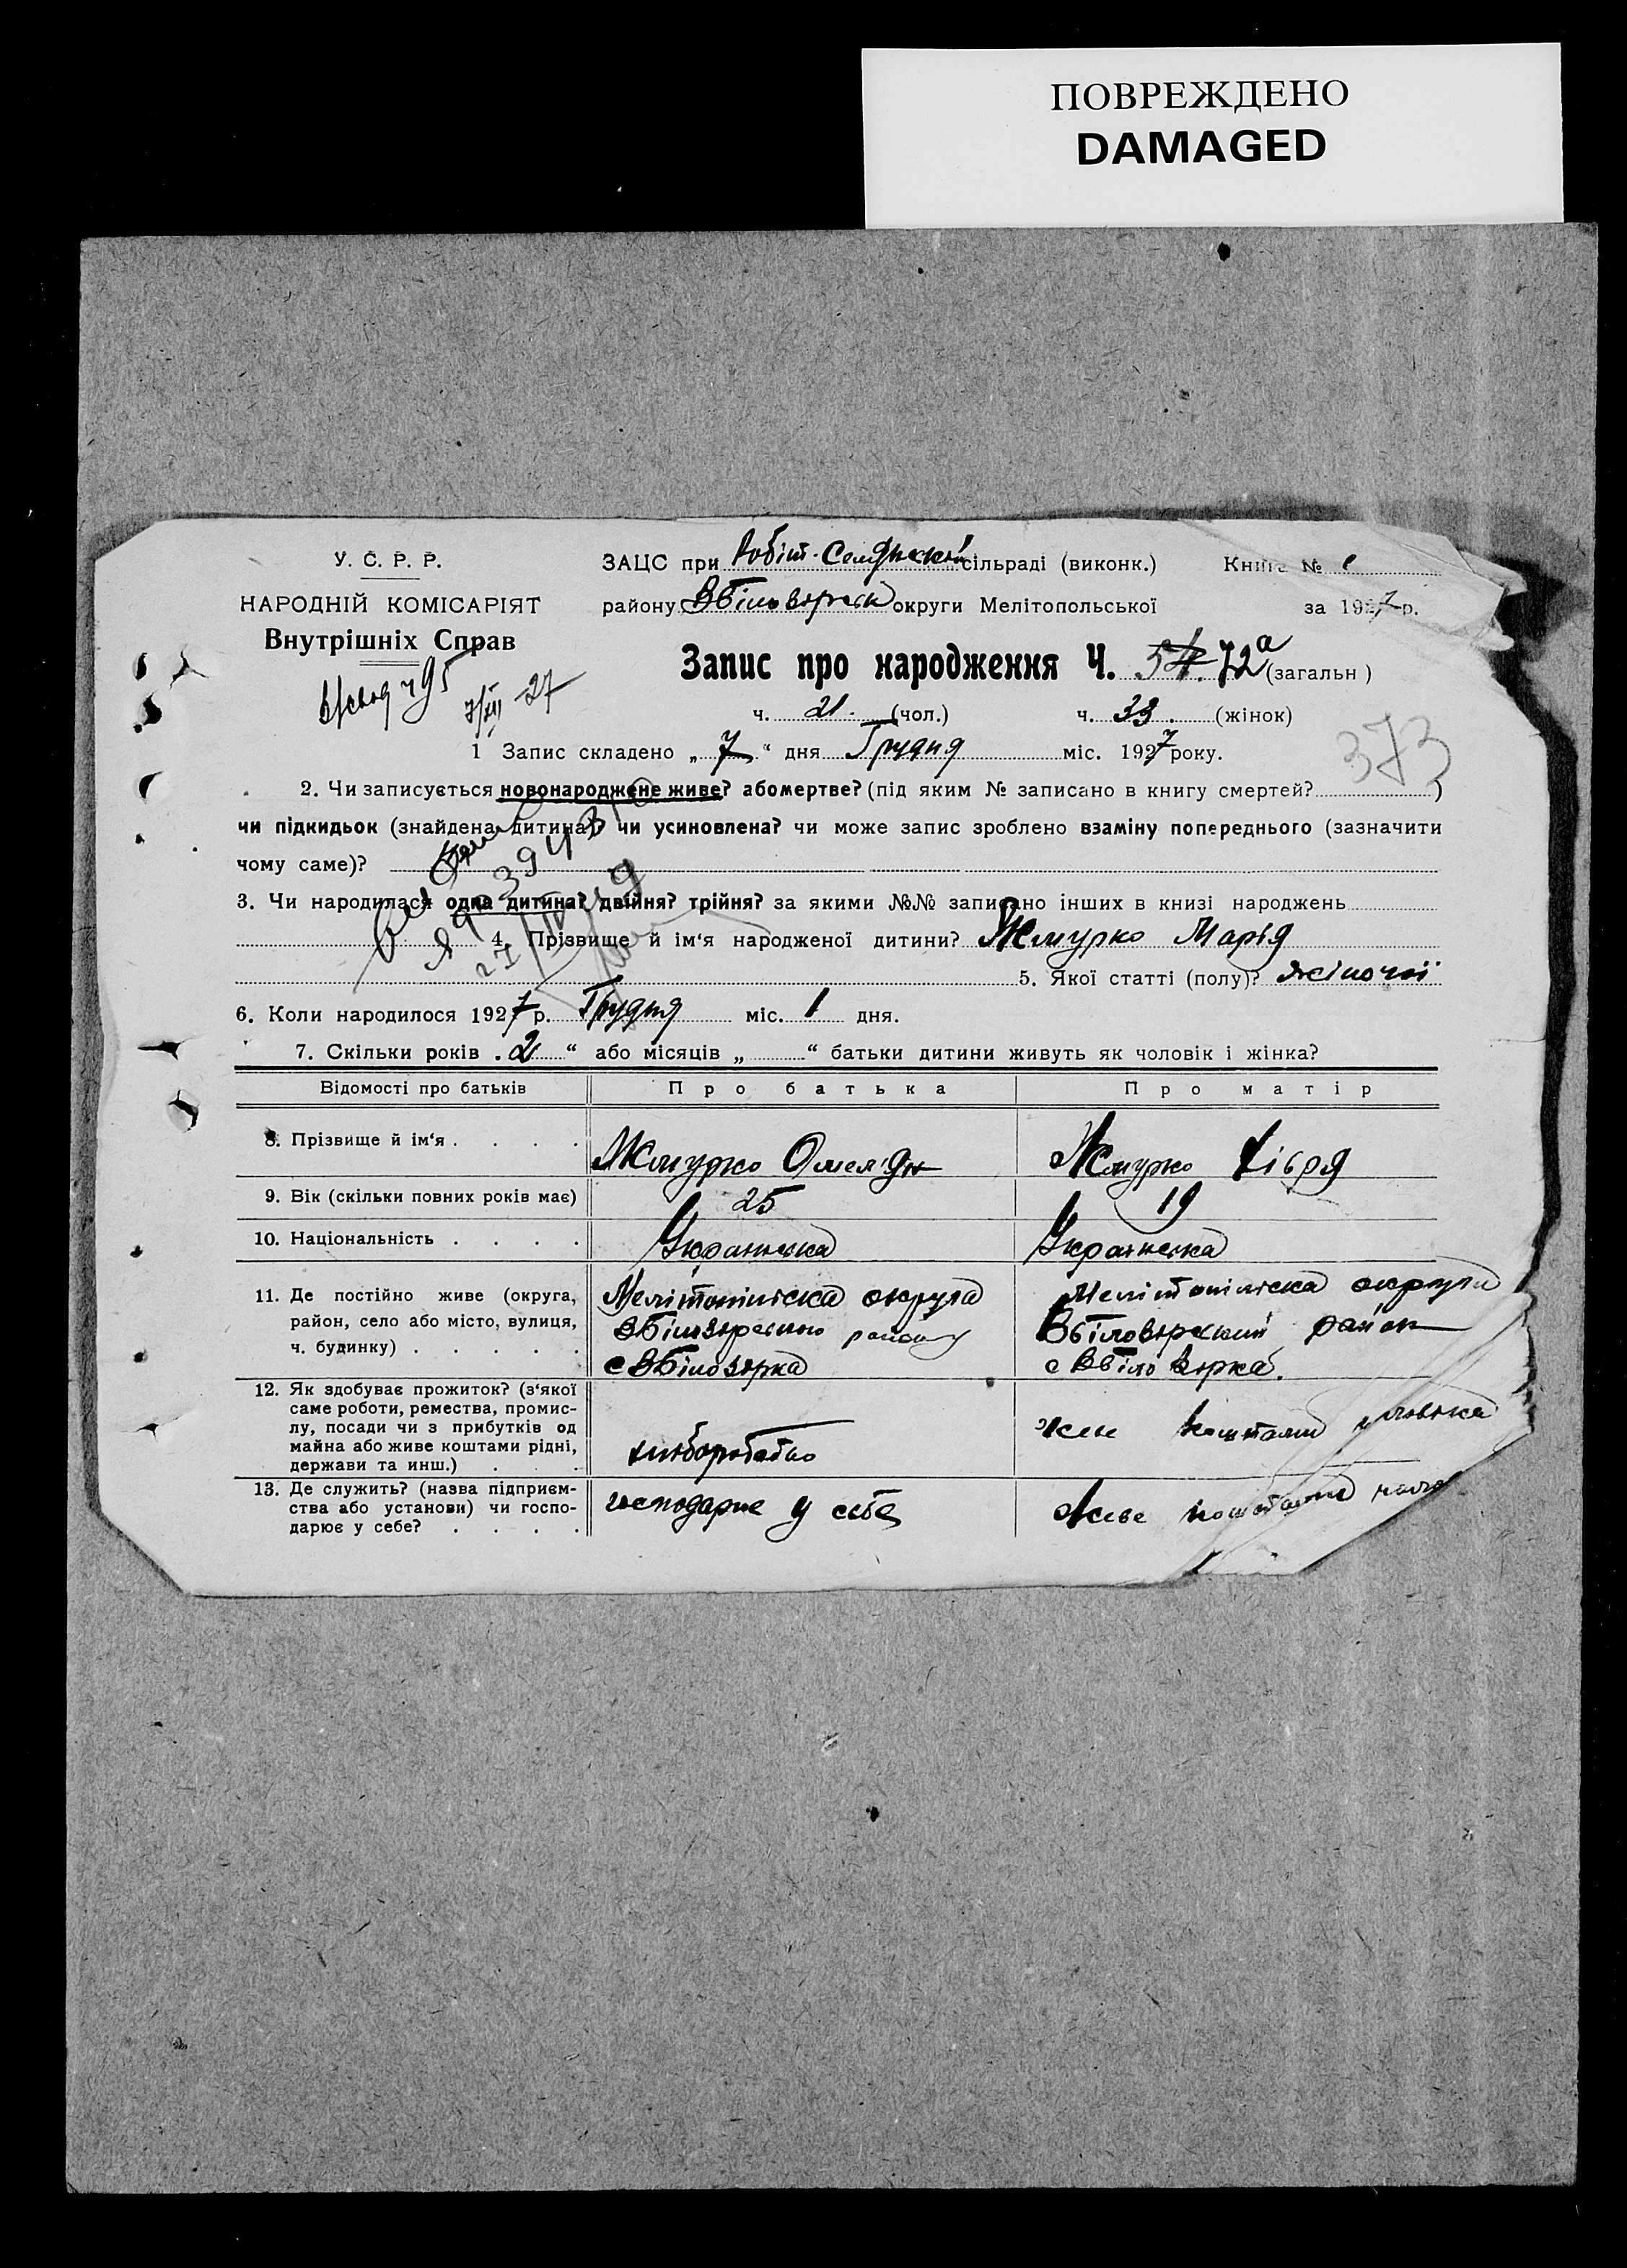 ПОВРЕЖДЕНО
DAMAGED
У. С. Р. Р.
НАРОДНІЙ КОМІСАРІЯТ
Внутрішніх Справ
ч 95
7/XII 27
ЗАЦС при Робіт.-Селянській сільраді (виконк.) Книга № 1
району ВБілозерськ округи Мелітопольської за 1927 р.
Запис про народження Ч. 54 72а (загальн)
ч. 21. (чол.) ч. 33. (жінок)
373
1 Запис складено „ 7 “ дня Грудня міс. 1927 року.
2. Чи записується новонароджене живе? або мертве? (під яким № записано в книгу смертей? )
чи підкидьок (знайдена дитина)? чи усиновлена? чи може запис зроблено взаміну попереднього (зазначити
чому саме)?
3. Чи народилася одна дитина? двійня? трійня? за якими №№ записано інших в книзі народжень
4. Прізвище й ім‘я народженої дитини? Жмурко Марія
5. Якої статті (полу)? жіночої
6. Коли народилося 1927 р. Грудня міс. 1 дня.
7. Скільки років „ 2 “ або місяців „ “ батьки дитини живуть як чоловік і жінка?
Відомості про батьків Про батька Про матір
8. Прізвище й ім‘я . . . . Жмурко Омелян Жмурко
9. Вік (скільки повних років має) 25 19
10. Національність . . . . Українська Українська
11. Де постійно живе (округа,
район, село або місто, вулиця,
ч. будинку) . . . . .
Мелітопільска округа
ВБілозерського району
с ВБілозерка
Мелітопільска округа
ВБілозерський район
с ВБілозерка.
12. Як здобуває прожиток? (з‘якої
саме роботи, ремества, промис-
лу, посади чи з прибутків од
майна або живе коштами рідні,
держави та инш.) . .
хліборобство
живе коштами чоловіка
13. Де служить? (назва підприєм-
ства або установи) чи госпо-
дарює у себе? . . . .
господарює у себе
живе коштами